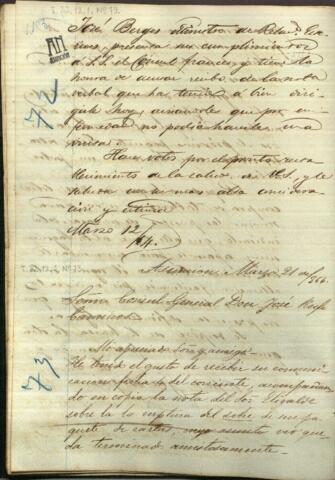 I-22,12,1, Nº 73
72
José Berges Ministro de Relac.s Ext
presenta sus cumplimientos
á S.S. el Consul frances, y tiene la
honra de avisar recibo de la nota
verbal que ha tenido á bien diri
girle hoy, anunciandole que por en
fermedad no podia hacerle una
visita.
Hace votos por el pronto resta
blecimiento de la salud de U.S. y le
reitera su mas alta considera
cion y estima
Marzo 12/
64.
I-22,12,1, Nº 73
73
Asuncion, Marzo 21 de/866.
Señor Consul General Don José Rufo
Caminos
Mi apreciado Señor y amigo:
He tenido el gusto de recibir su comuni
cacion fecha 4 del corriente, acompañan
do en copia la nota del Sor Elizalde
sobre la ruptura del sobre de un pa
quete de cartas, cuyo asunto veo que
ha terminado amistosamente.